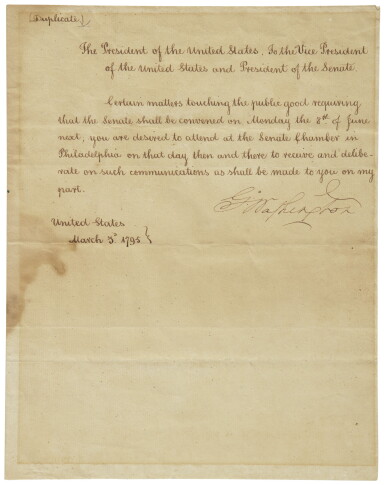 (Duplicate)
The President of the United States, To the Vice President
of the United States and President of the Senate.
Certain matters touching the public good requiring
that the Senate shall be convened on Monday the 8th of June
next, you are desired to attend at the Senate Chamber in
Philadelphia on that day, then and there to receive and delibe-
rate on such communications as shall be made to you on my
part.
G. Washington
United States
March 3d 1795 }